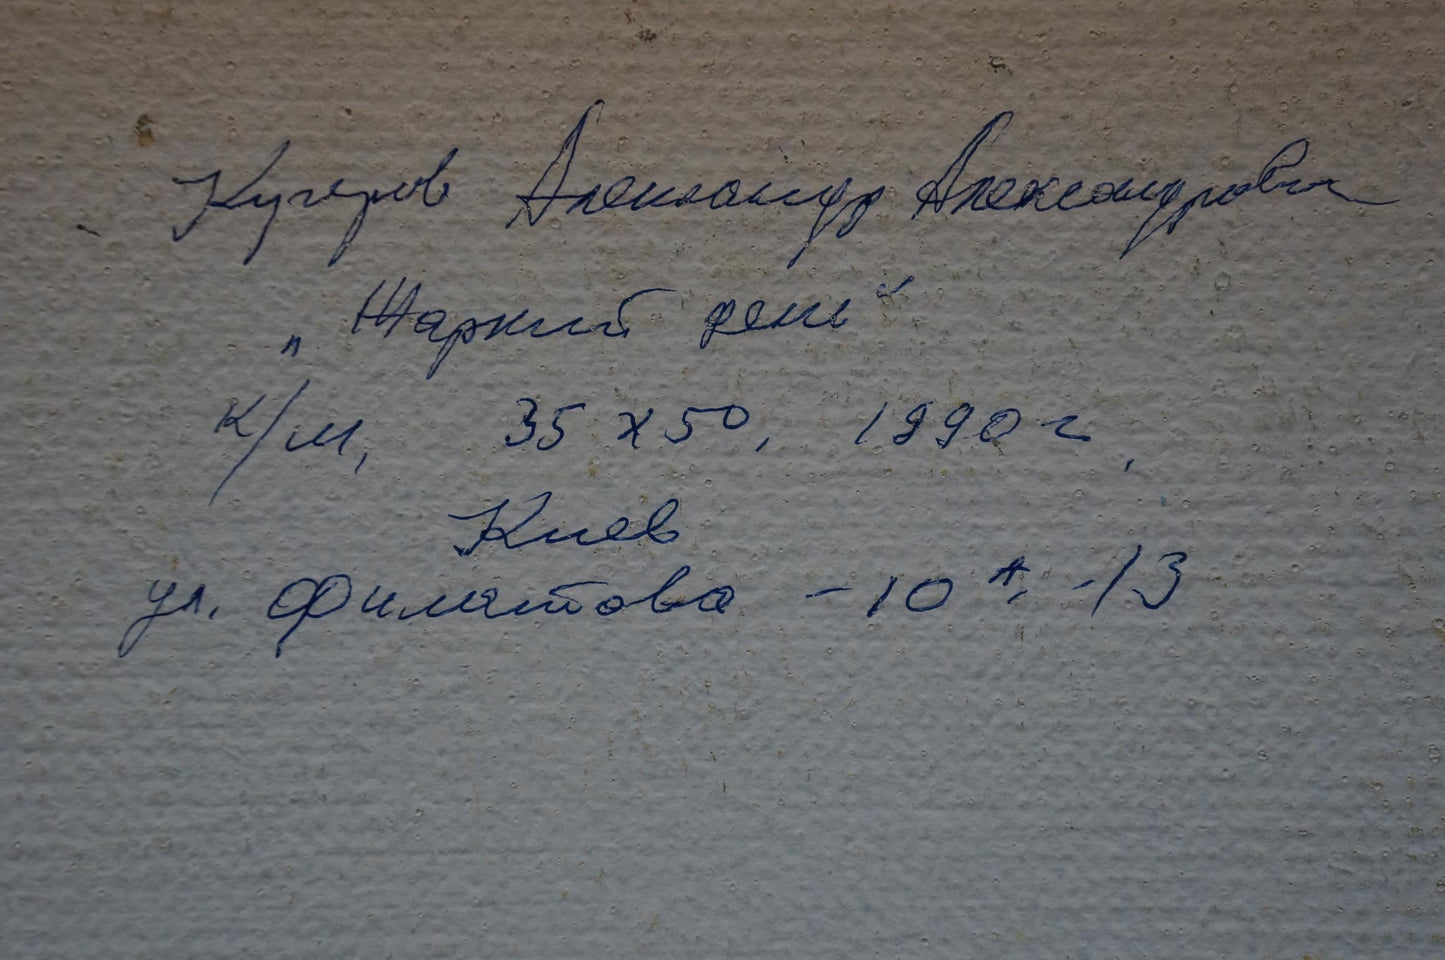 Кучеров Александр Александрович
„Жаркий день“
к/м, 35 х 50, 1990 г,
Киев
ул. Филатова - 10 А, -13